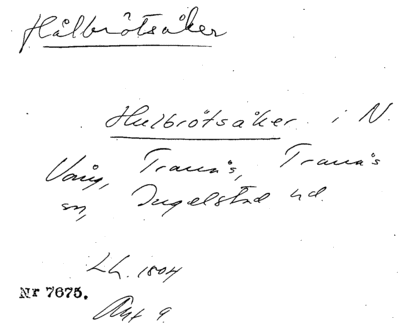 Hålbrötsåker
Hulbrötsåker i N.
Vång, Tranås, Tranås
sn, Ingelstad hd.
Lh. 1804
Nr 7675.
Akt 9.